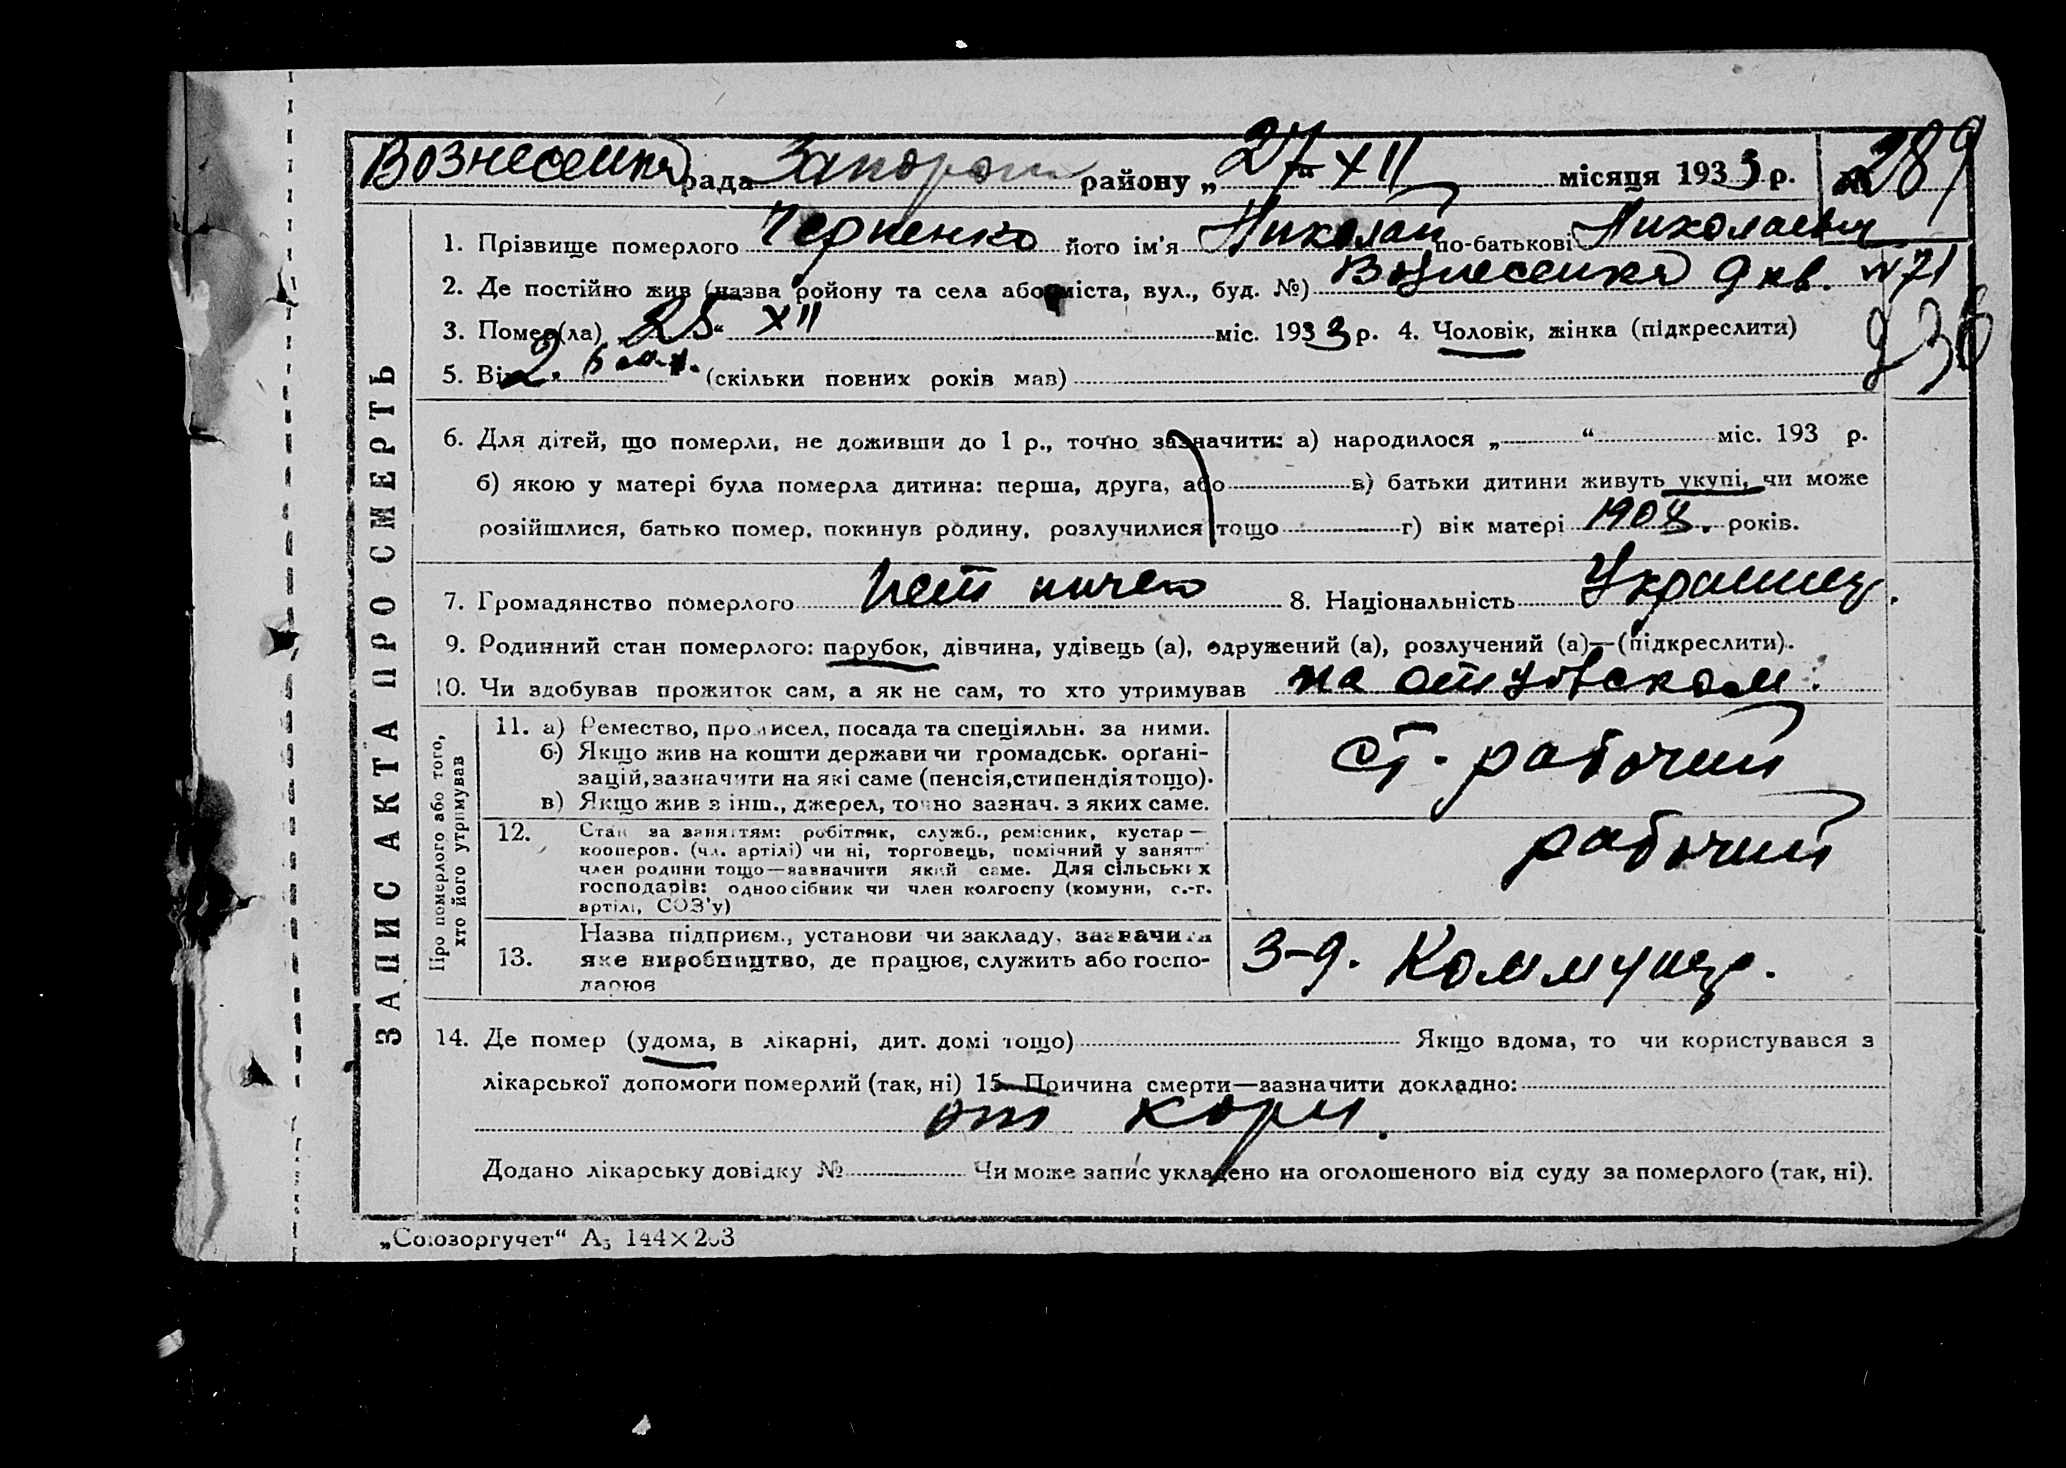 Вознесенка рада Запорож району „27“ XII місяця 1933 р. № 289
1. Прізвище померлого Черненко його ім'я Николай по-батькові Николаевич
2. Де постійно жив (назва ройону та села або міста, вул., буд. №) Вознесенка 9 кв. №71
3. Помер(ла) 25“ XII міс. 1933 р. 4. Чоловік, жінка (підкреслити)
236
5. Вік 2. 6 мес. (скільки повних років мав)
6. Для дітей, що померли, не доживши до 1 р., точно зазначити: а) народилося „ “ міс. 193 р.
б) якою у матері була померла дитина: перша, друга, або в) батьки дитини живуть укупі, чи може
розійшлися, батько помер, покинув родину, розлучилися тощо г) вік матері 1908. років.
7. Громадянство померлого нет ничего 8. Національність Украинец.
9. Родинний стан померлого: парубок, дівчина, удівець (а), одружений (а), розлучений (а)—(підкреслити).
10. Чи здобував прожиток сам, а як не сам, то хто утримував на отцовском.
ЗАПИС АКТА ПРО СМЕРТЬ
Про померлого або того, хто його утримував
11. а) Ремество, промисел, посада та спеціяльн. за ними.
б) Якщо жив на кошти держави чи громадськ. орґані-
зацій, зазначити на які саме (пенсія, стипендія тощо).
в) Якщо жив з інш., джерел, точно зазнач. з яких саме.
ст. рабочий
12. Стан за заняттям: робітник, служб., ремісник, кустар—
кооперов. (чл. артілі) чи ні, торговець, помічний у занятт
член родини тощо—зазначити який саме. Для сільських
господарів: одноосібник чи член колгоспу (комуни, с.-г.
артілі, СОЗ'у)
рабочий
13. Назва підприєм., установи чи закладу, зазначити
яке виробництво, де працює, служить або госпо-
дарює
З-д. Коммунар.
14. Де помер (удома, в лікарні, дит. домі тощо) Якщо вдома, то чи користувався з
лікарської допомоги померлий (так, ні) 15. Причина смерти—зазначити докладно:
от кори.
Додано лікарську довідку № Чи може запис укладено на оголошеного від суду за померлого (так, ні).
„Союзоргучет“ А5 144×203